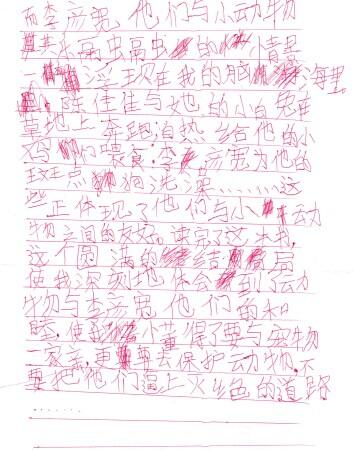 而李彦宽他们与小动物
其乐融融的情景
一一浮现在我的脑海里
陈佳佳与她的小白兔在
草地上奔跑，迫热给他的小
鸡们喂食，李彦宽为他的
斑点狗洗澡……这
些正体现了他们与小动
物之间的友好。读完了这本书，
这个圆满的结局
使我深刻地体会到了动
物与李彦宽他们的和
睦，使我懂得了要与宠物
一家亲，更要去保护动物，不
要把他们逼上火色的道路
……